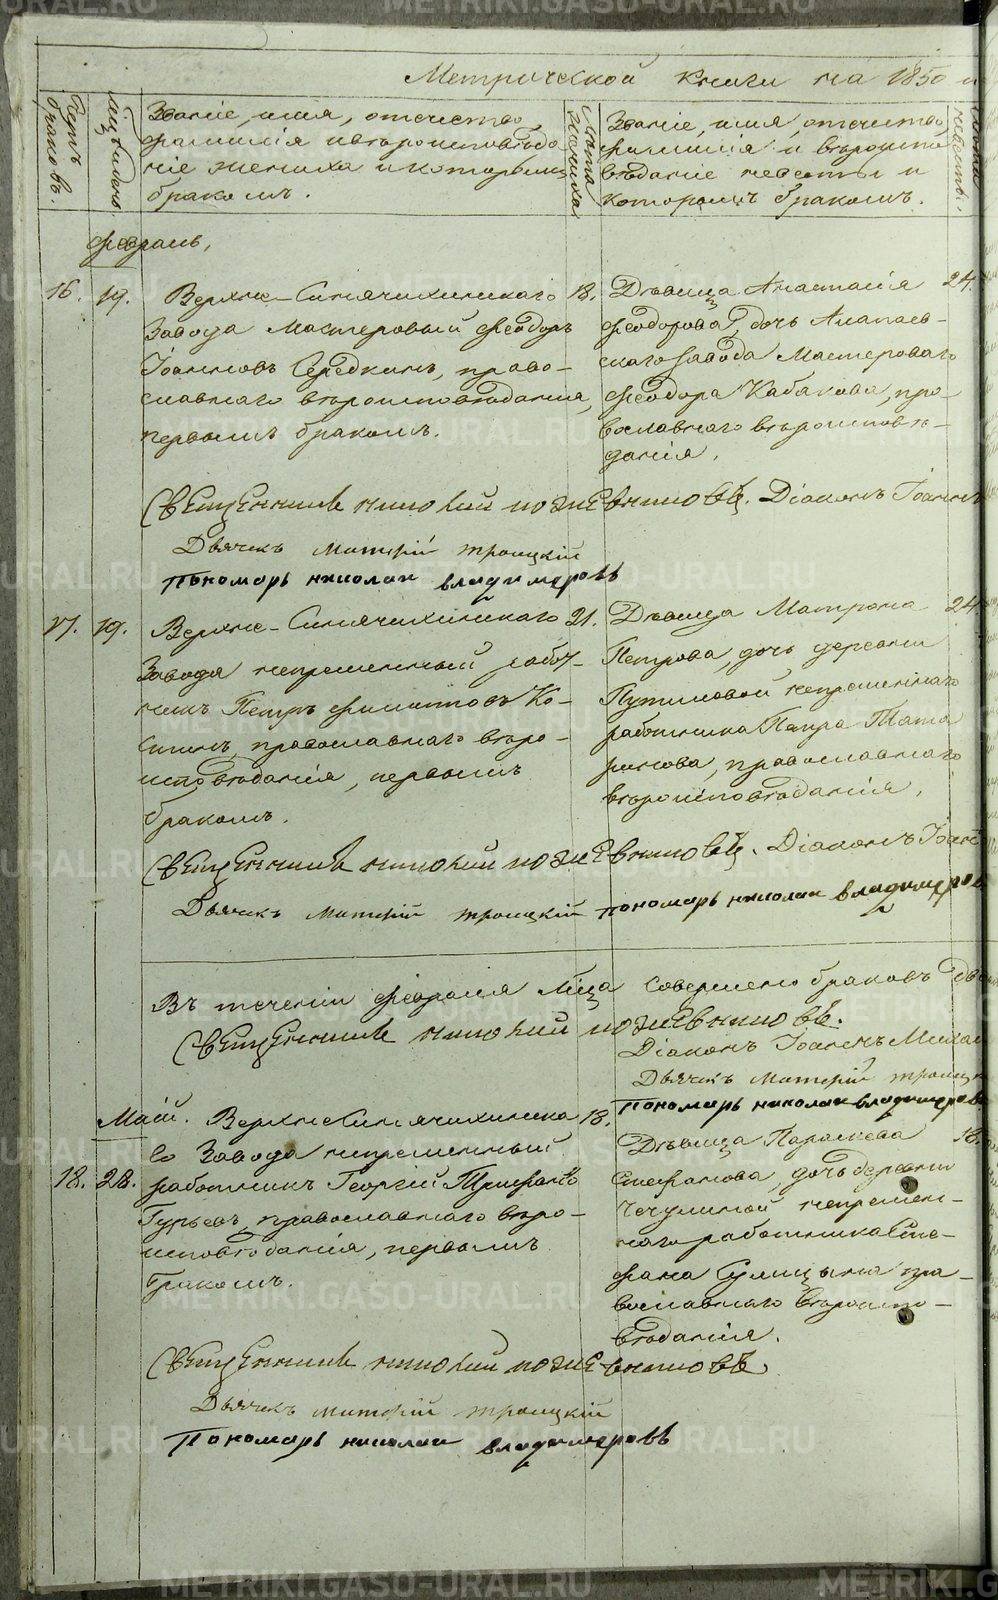 Метрической книги на 1850 и
Щетъ браковъ.
Мѣс: и день
Званіе, имя, отечество,
фамилія и вѣроисповѣда
ніе жениха и которымъ
бракомъ.
Лѣта жениха
Званіе, имя, отечество,
фамилія и вѣроиспо
вѣданіе невѣсты и
которымъ бракомъ.
Лѣта невѣсты.
Февраль,
16. 19. Верхне-Синячихинскаго 18.
Завода Мастеровый Феодоръ
Іоанновъ Середкинъ, право-
славнаго вѣроисповѣданія,
первымъ бракомъ.
Дѣвица Анастасія 24.
Феодорова, дочь Алапаев-
скаго завода Мастероваго
Феодора Кабакова, пра-
вославнаго вѣроисповѣ-
данія.
Священникъ николай ножевниковъ. Діаконъ Іоаннъ
Дьячекъ Матѳій троицкій
пономарь николаи владимеровъ
17. 19. Верхне-Синячихинскаго 21.
Завода непременный работ-
никъ Петръ Филатовъ Ко-
синъ, православнаго вѣро-
исповѣданія, первымъ
бракомъ.
Дѣвица Матрона 24
Петрова, дочь деревни
Путиловой непременнаго
работника Петра Тата
ринова, православнаго
вѣроисповѣданія,
Священникъ николай ножевниковъ. Діаконъ Іоан
Дьячекъ Матѳій троицкій пономарь николаи владимеров
Въ теченіи февраля мѣца совершено браковъ две
Священникъ николай ножевниковъ.
Діаконъ Іоаннъ Михаи
Дьячекъ Матѳій троицк
пономарь николаи владимеров
Маій. Верхнесинячихинска 18.
го Завода непременный
18. 28. работникъ Георгій Трифоно
Гурьевъ, православнаго вѣро-
исповѣданія, первымъ
бракомъ.
Дѣвица Параскева 18.
Стефанова, дочь деревни
Чечулиной непремен-
наго работника Сте-
фана Сулицына пра-
вославнаго вѣроиспо-
вѣданія.
Священникъ николай ножевниковъ.
Дьячекъ матѳій троицкій
Пономарь николаи владимеровъ
METRIKI.GASO-URAL.RU